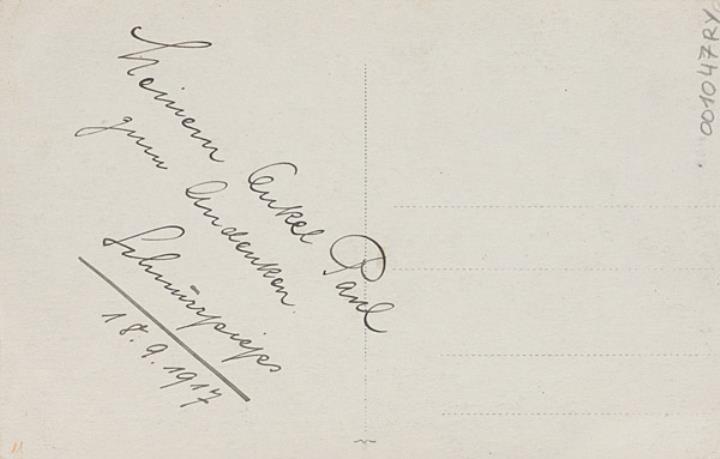 Meinem Onkel Paul
zum Andenken.
Schnurzpieps
18.9.1917
001047RY
11